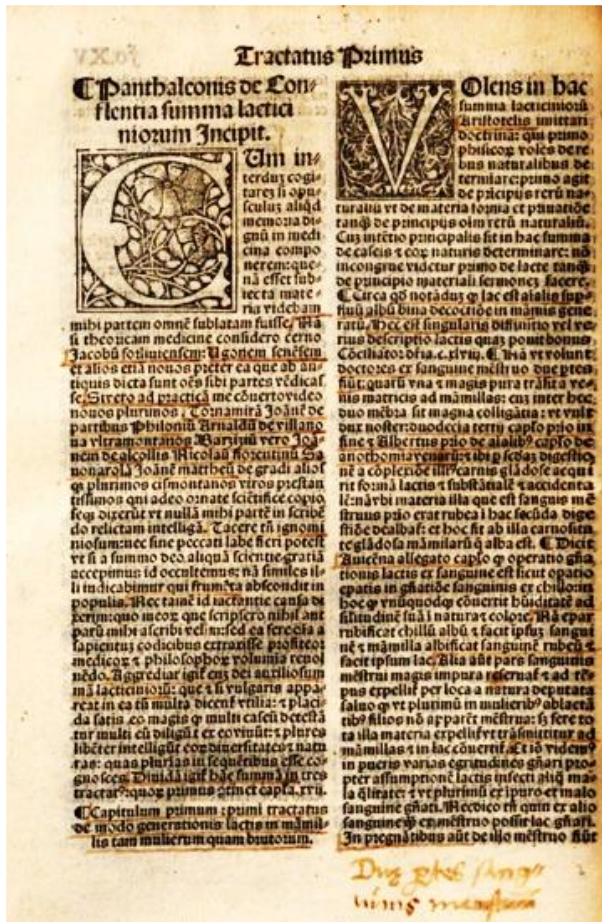 Tractatus Primus
¶ Panthaleonis de Con-
flentia summa lactici
niorum Incipit.
CUm in-
terduz cogi
tarez si opu-
sculuz aliqd
memoria di-
gnū in medi
cina compo
nerem: que-
nā esset sub-
iecta mate-
ria videbam
mihi partem omnē sublatam fuisse. Nā
si theoricam medicine considero cerno
Jacobū forliuiensem: Ugonem senēsem
et alios etiā nouos preter ea que ab an-
tiquis dicta sunt oēs sibi partes vēdicas
se. Si vero ad practicā me cōuerto video
nouos plurimos. Tornamirā Joānē de
partibus Philoniū Arnaldū de villano
ua vltramontanos Barziziū vero Joā-
nem de Nicolaū florentinū Sa
uonarolā Joānē mattheū de gradi alios
qz plurimos cismontanos viros prestan
tissimos qui adeo ornate sciētifice copio
seqz dixerūt vt nullā mihi partē in scribē
do relictam intelligā. Tacere tn̄ ignomi
niosum: nec sine peccati labe fieri potest
vt si a summo deo aliquā scientie gratiā
accepimus id occultemus: nā similes il-
li indicabimur qui frumēta abscondit in
populis. Nec tamē id iactantie causa di
xerim: quo in eoz que scripsero nihil aut
parū mihi ascribi velim: sed ea fere oīa a
sapientuz codicibus extraxisse profiteor
medicoz et philosophoz volumīa reuol
uēdo. Aggrediar igit cuz dei auxilio sum
mā lacticiniorū: que et si vulgaris appa-
reat in ea tn̄ multa dicent vtilia: et placi-
da satis eo magis qz multi caseū detestā
tur multi eū diligūt et eo viuūt: et plures
libēter intelligūt eoz diuersitates et natu
ras: quas plurīas in sequētibus esse co-
gnosces. Diuidā igit hāc summā in tres
tractat9: quoz primus ɔtinet capla. xvii.
¶ Capitulum primum: primi tractatus
de modo generationis lactis in māmil-
lis tam mulierum quam brutorum.
VOlens in hac
summa lacticiniorū
Aristotelis imitari
doctrinā: qui primo
phisicoz volēs de re
bus naturalibus de
termiare: primo agit
de pricipijs rerū na-
turaliū vt de materia forma et priuatiōe
tanqz de principijs oīm rerū naturaliū.
Cuz intētio principalis sit in hac summa
de caseis et eoz naturis determinare: nō
incongrue videtur primo de lacte tanqz
de principio materiali sermonez facere.
¶ Circa qd notāduz qz lac est aīalis sup-
fluū albū bina decoctiōe in māmis gene
ratū. Hec est singularis diffinitio vel ve
rius descriptio lactis quaz ponit bonus
Cōciliator: dr̄ia. c. lxviij. ¶ Nā vt volunt
doctores ex sanguine mēstruo due ptes
fiūt: quarū vna et magis pura trāsit a ve-
nis matricis ad māmillas: cuz inter hec
duo mēbra sit magna colligātia: vt vult
dux noster: duodecia terrij caplo prio in
fine et Albertus prio de aīalib9 caplo de
anothomia venarū: et ibi p scdaz digestio
nē a cōplexiōe illi9 carnis glādose acqui
rit formā lactis et substātialē et accidenta
lē: nā vbi materia illa que est sanguis mē
struus prio erat rubea i hac secūda dige-
stiōe dealbat: et hoc fit ab illa carnosita
te glādosa māmilarū q alba est. ¶ Dicit
Auicēna allegato caplo qz operatio gña
tionis lactis ex sanguine est sicut opatio
epatis in gñatiōe sanguinis ex chillo: in
hoc qz vnūquodqz cōuertit hūiditatē ad
silitudinē suā i natura et colore. Nā epar
rubificat chillū albū et facit ipsuz sangui
nē et mamilla albificat sanguinē rubeū et
facit ipsum lac. Alia aūt pars sanguinis
mēstrui magis impura reseruat et ad tē-
pus expellit per loca a natura deputata
saluo qz vt plurimū in mulierib9 ablactā
tib9 filios nō apparēt mēstrua: qz fere to
ta illa materia expellit et trāsmittitur ad
māmillas et in lac cōuertit. Et iō videm9
in pueris varias egritudines gñari pro-
pter assumptionē lactis infecti aliq ma-
la qlitate: et vt plurimū ex ipuro et malo
sanguine gñati. Nec dico tn̄ quin ex alio
sanguine qz ex mēstruo possit lac gñari.
In pregnātibus aūt de illo mēstruo fiūt
Duę ptes sang-
uinis menstrui